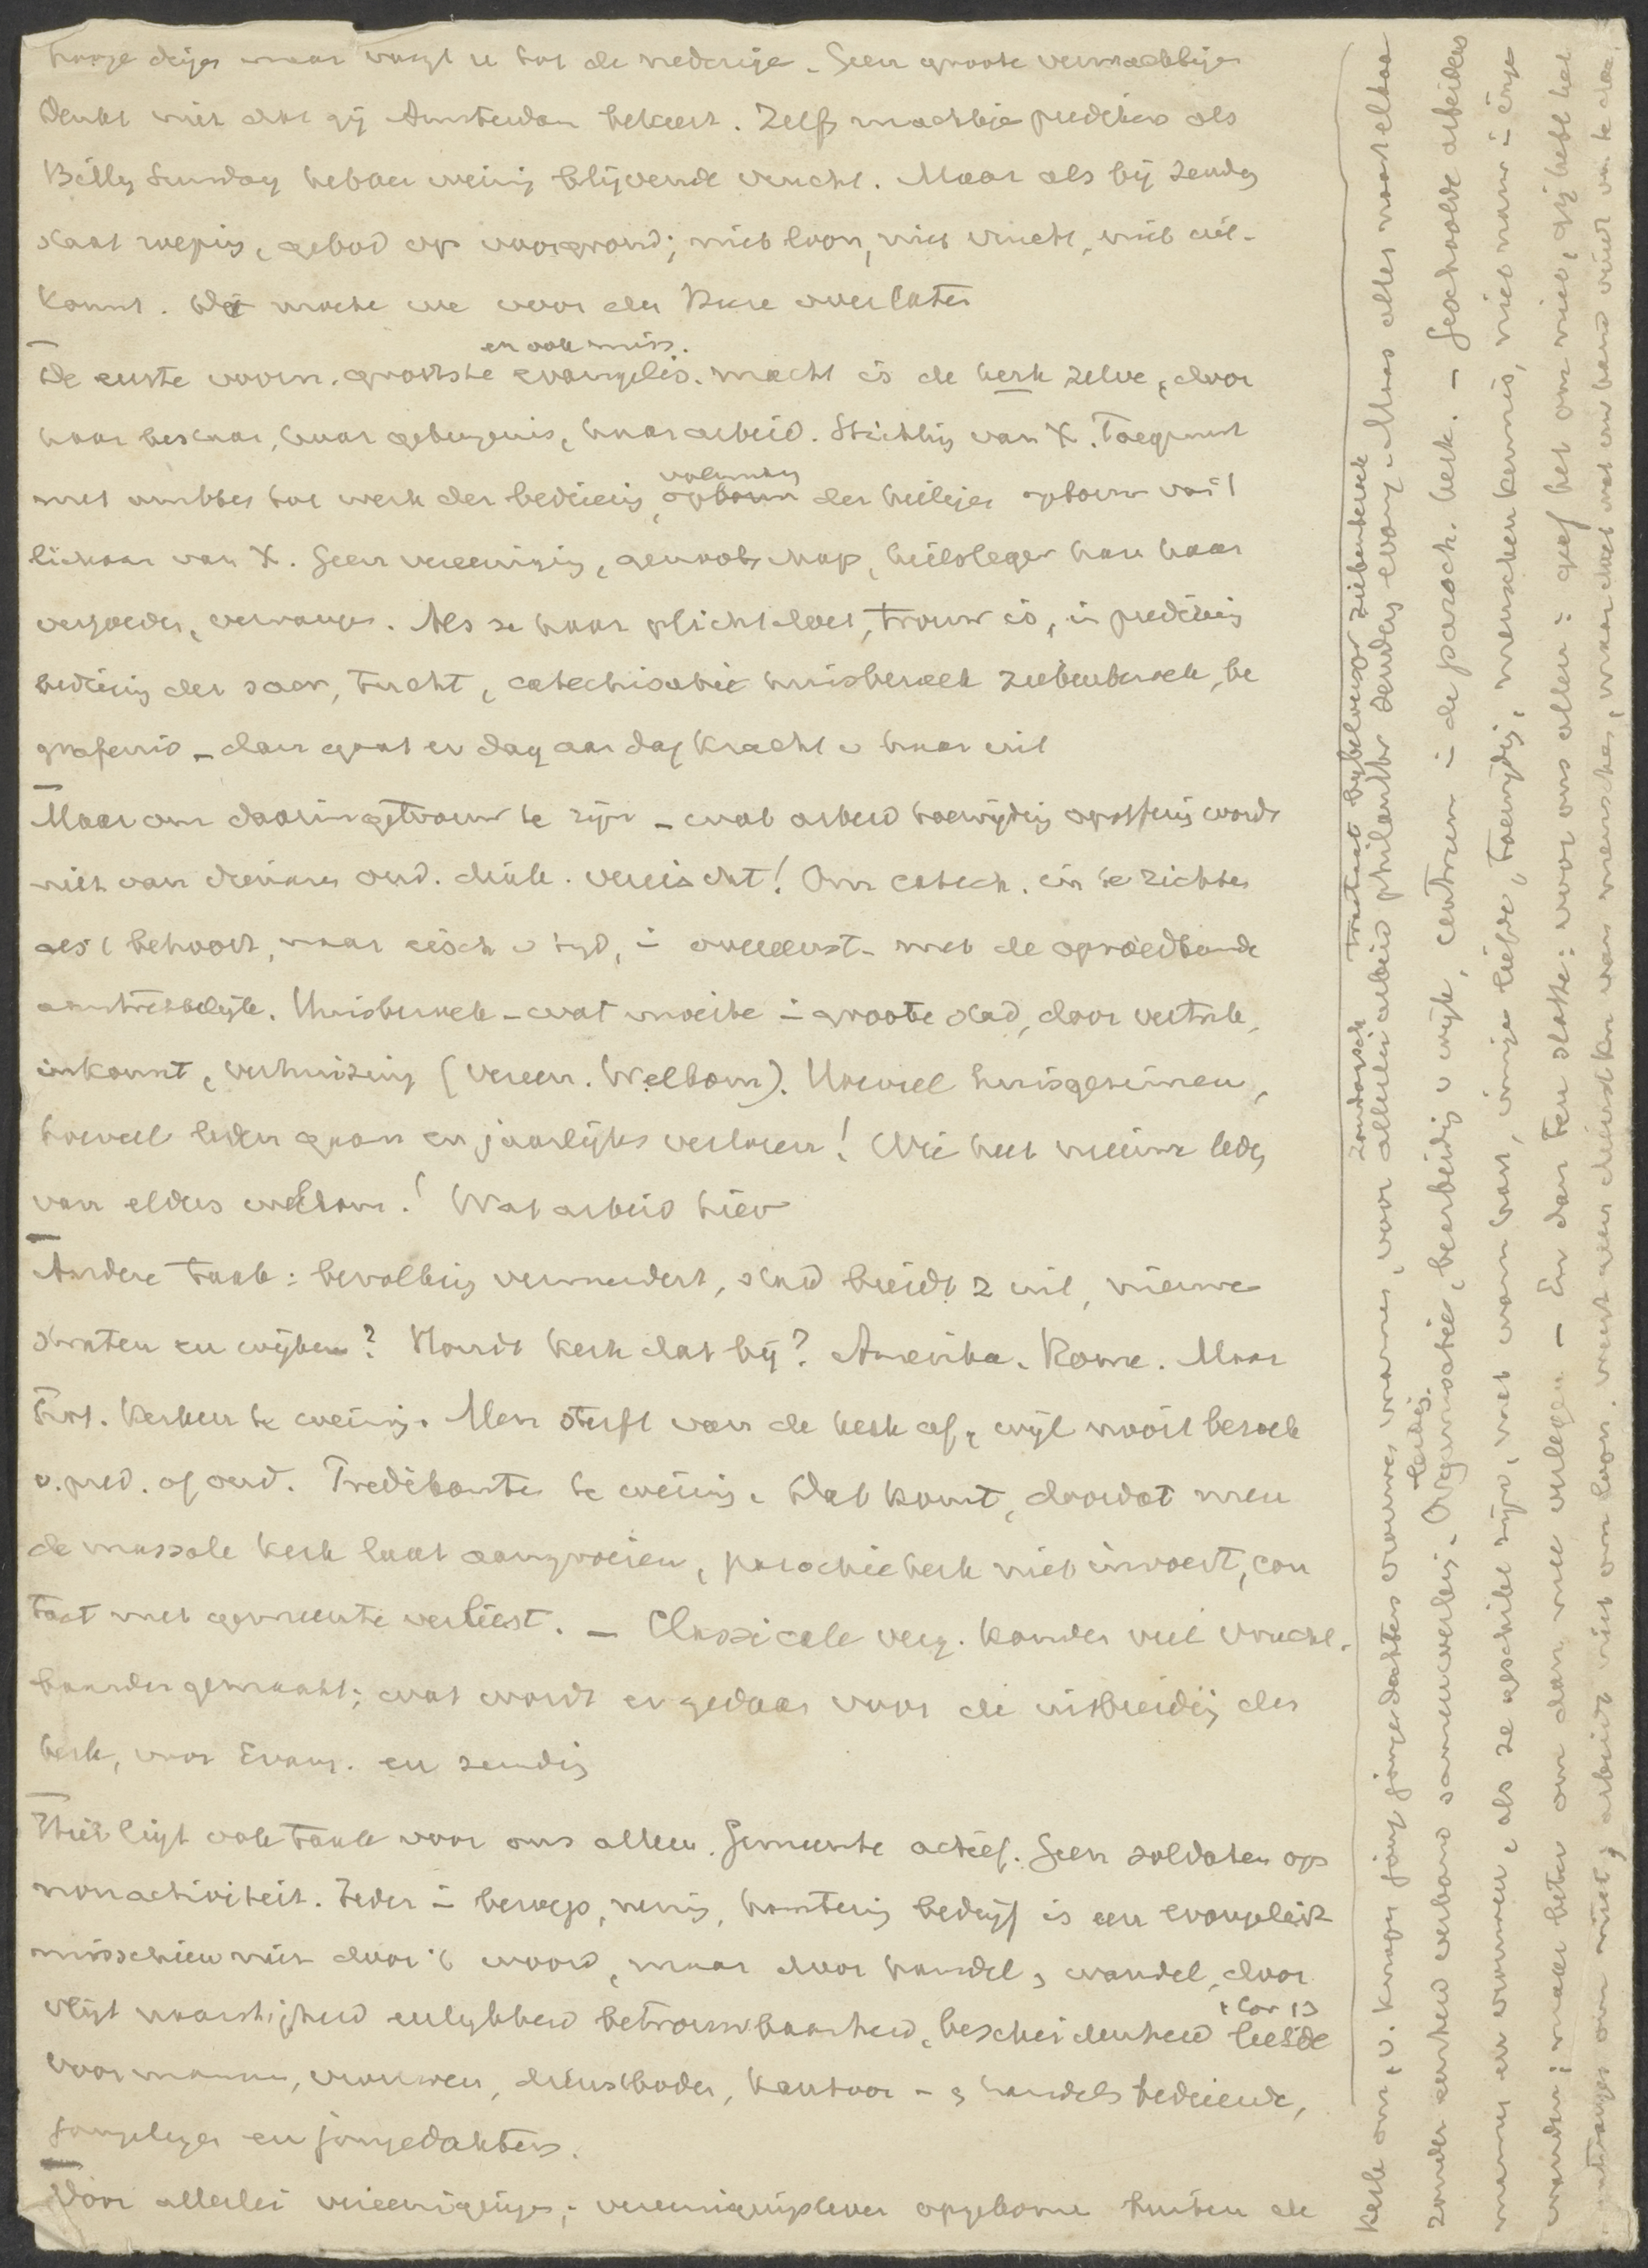 hooge dinge maar voegt u tot de nederige. Geen groote verwachtinge
Denkt niet dat gij Amsterdam bekeert. Zelfs machtige predikers als
Billy Sunday hebben weinig blijvende vrucht. Maar als bij zending
staat roeping, gebod op voorgrond; niet loon, niet vrucht, niet uit-
komst. Die moete we voor den Heere overlaten
en ook miss.
De eerste voorn. grootste evangelis. macht is de kerk zelve, door
haar bestaan, haar getuigenis, haar arbeid. Stichting van X. Toegerust
volmaking
met ambten tot werk der bediening, opbouw der heiligen opbouw van 't
lichaam van X. Geen vereeniging, genootschap, heilsleger kan haar
vergoeden, vervangen. Als ze haar plicht doet, trouw is, in prediking
bediening der sacr, tucht, catechisatie huisbezoek ziekenbezoek, be
grafenis – dan gaat er dag aan dag kracht v haar uit
Maar om daarin getrouw te zijn – wat arbeid toewijding opoffering wordt
niet van dienaren oud. diak. vereischt! Om catech. in te richten
als 't behoort, naar eisch v tijd, in overeenst. met de opvoedkunde
aantrekkelijk. Huisbezoek – wat moeite in groote stad, door vertrek,
inkomst, verhuizing (Vereen. Welkom). Hoeveel huisgezinnen,
hoeveel leden gaan er jaarlijks verloren! Wie heet nieuwe leden
van elders welkom! Wat arbeid hier
Andere taak: bevolking vermeerdert, stad breidt z uit, nieuwe
straten en wijken? Houdt kerk dat bij? Amerika. Rome. Maar
Prot. kerken te weinig. Men sterft van de kerk af, wijl nooit bezoek
v. pred. of oud. Predikanten te weinig. Dat komt, doordat men
de massale kerk laat aangroeien, parochiekerk niet invoert, con
tact met gemeente verliest. – Classicale verg. konden veel vrucht-
baarder gemaakt; wat wordt er gedaan voor de uitbreiding der
kerk, voor Evang. en zending
Hier ligt ook taak voor ons allen. Gemeente actief. Geen soldaten op
nonactiviteit. Ieder in beroep, nering, hantering bedrijf is een evangelist
misschien niet door 't woord, maar door handel & wandel, door
1 Cor 13
vlijt naarstigheid eerlijkheid betrouwbaarheid, bescheidenheid liefde
voor mannen, vrouwen, dienstboden, kantoor- & handelsbediende,
jongelingen en jongedochters.
Door allerlei vereenigingen; vereenigingsleven opgekomen buiten de
kerk om, v. knapen jong jongedochters vrouwen mannen, voor allerlei arbeid philanthr zending evang. Maar alles naast elkaar
Zondagsch tractaat bijbellezer ziekenbezoek
zonder eenheid verband samenwerking. Organisatie, bearbeiding v wijk, centrum in de paroch. kerk. – Geschoolde arbeiders
leiding.
mannen en vrouwen, als ze geschikt zijn, met warm hart, innige liefde, toewijding, menschenkennis, niet naar in enge
wanden; maar beter om dan mee vullen – En dan ten slotte: voor ons allen: geef het om niet, gij hebt het
ontvangen om niet; arbeidt niet om loon. weest geen dienstkn van menschen, maar doet wat uw hand vindt om te doen